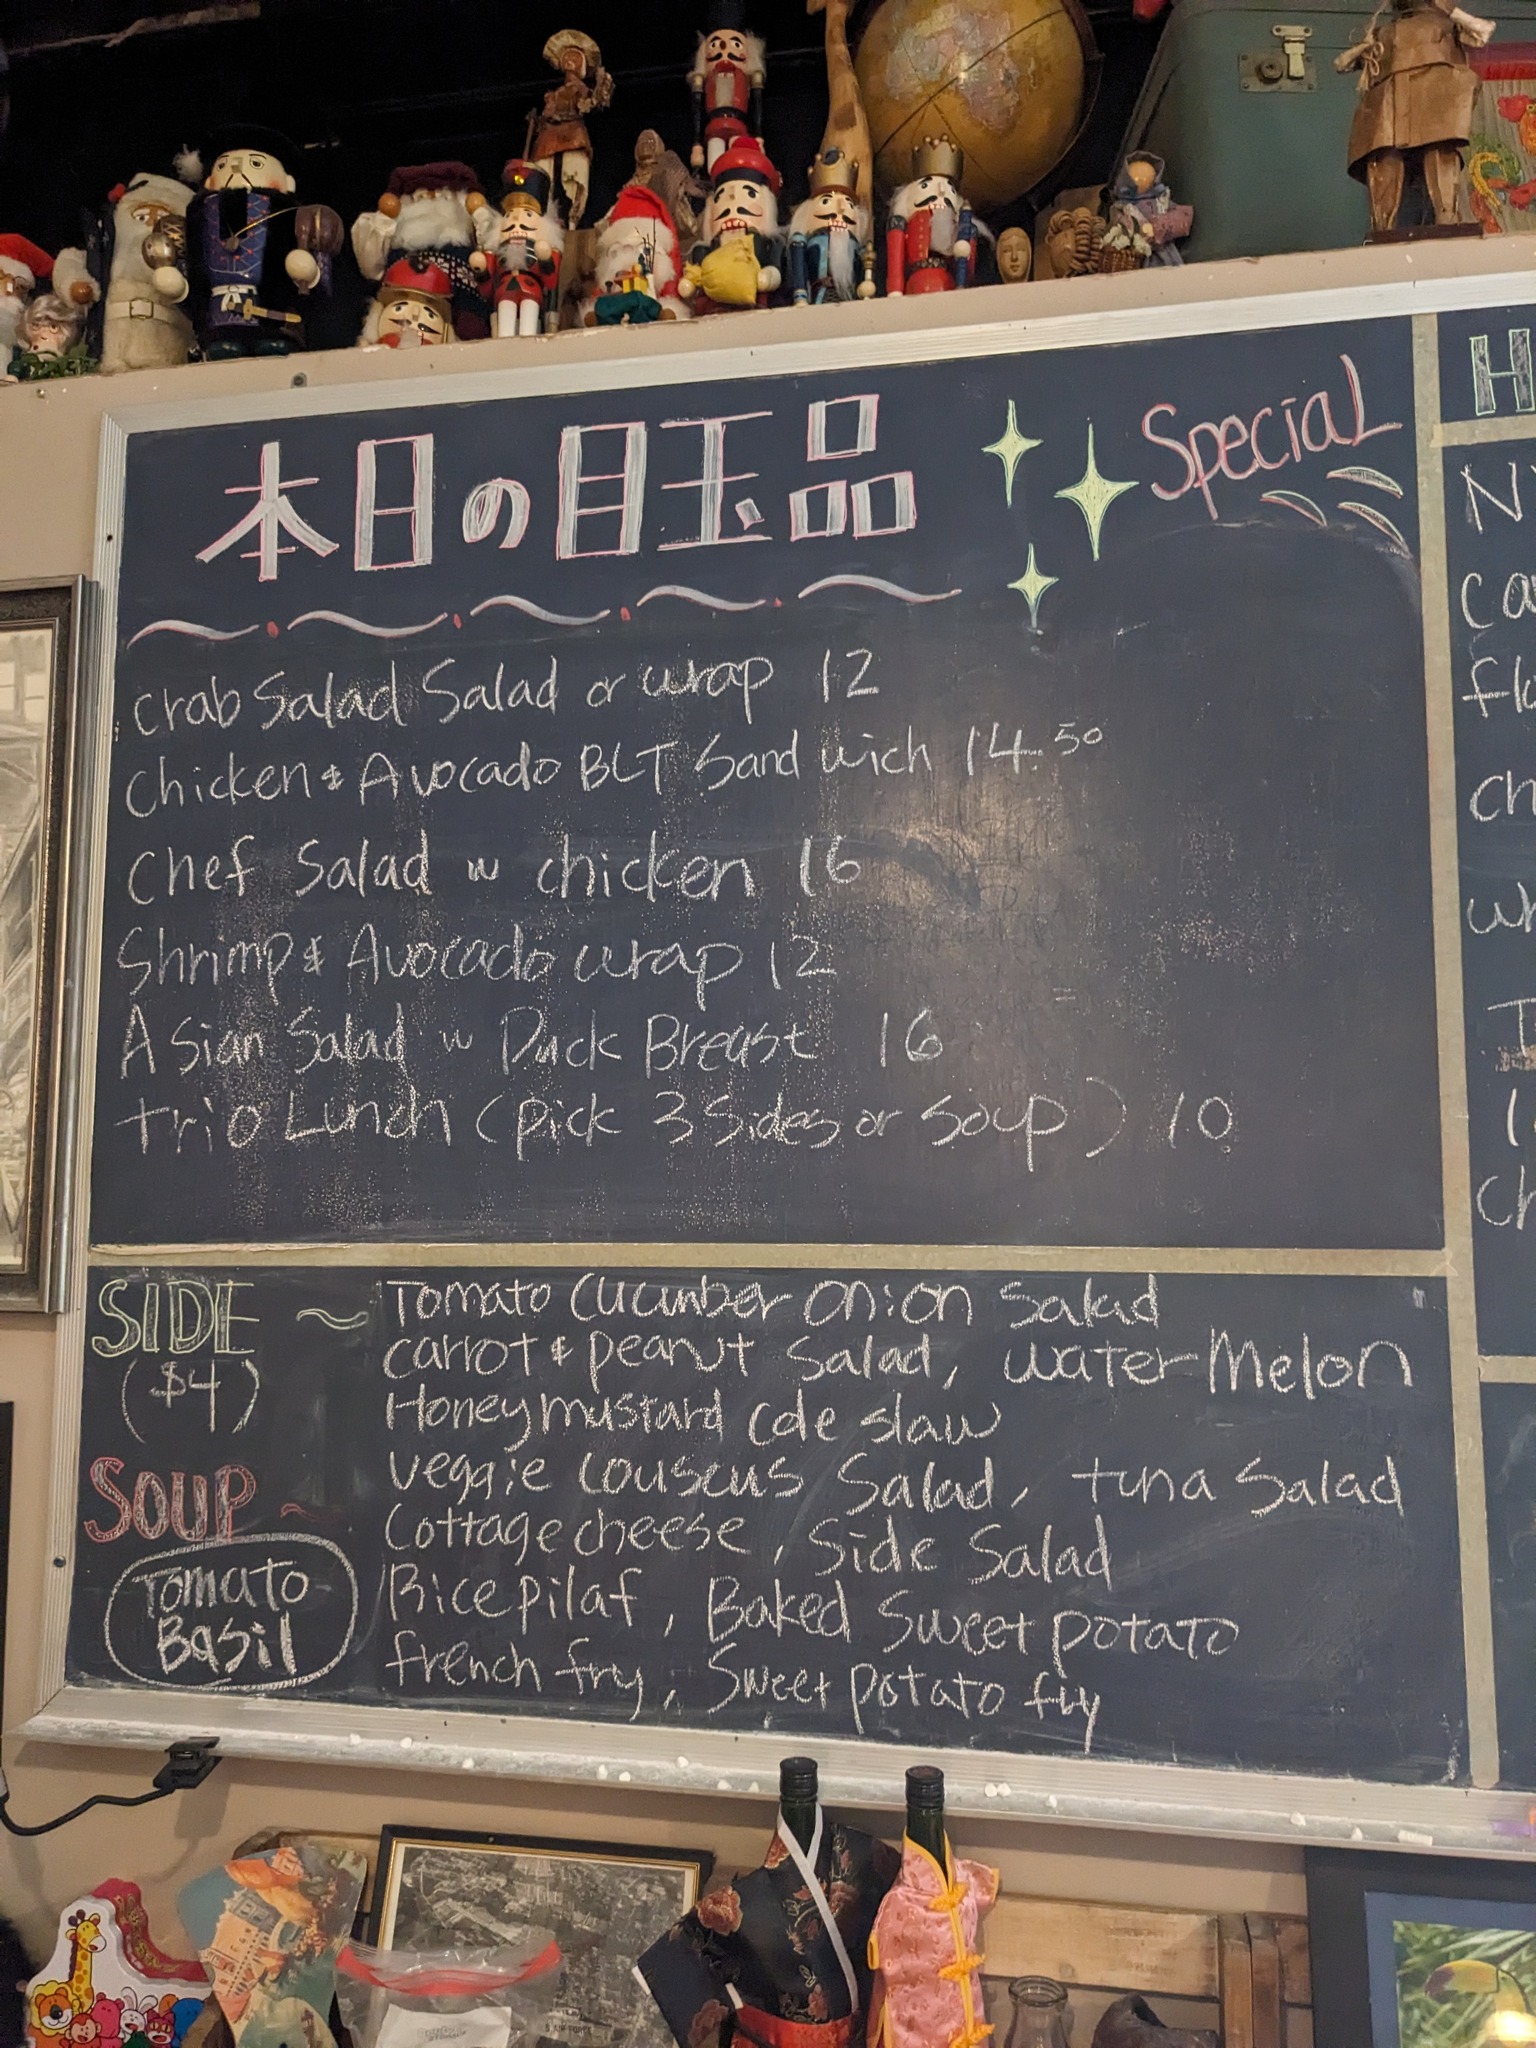 本日の目玉品 Special
Crab Salad Salad or wrap 12
Chicken & Avocado BLT Sandwich 14.50
Chef Salad w chicken 16
Shrimp & Avocado wrap 12
Asian Salad w Duck Breast 16
Trio Lunch (pick 3 Sides or Soup) 10
SIDE ~
($4)
Tomato Cucumber Onion Salad
Carrot & peanut Salad, water Melon
Honey mustard Cole slaw
Veggie Couscus Salad, tuna Salad
Cottage cheese, Side Salad
Rice pilaf, Baked Sweet potato
french fry, Sweet potato fry
SOUP ~
Tomato
Basil
H
N
Ca
fl
Ch
wh
T
1
Ch